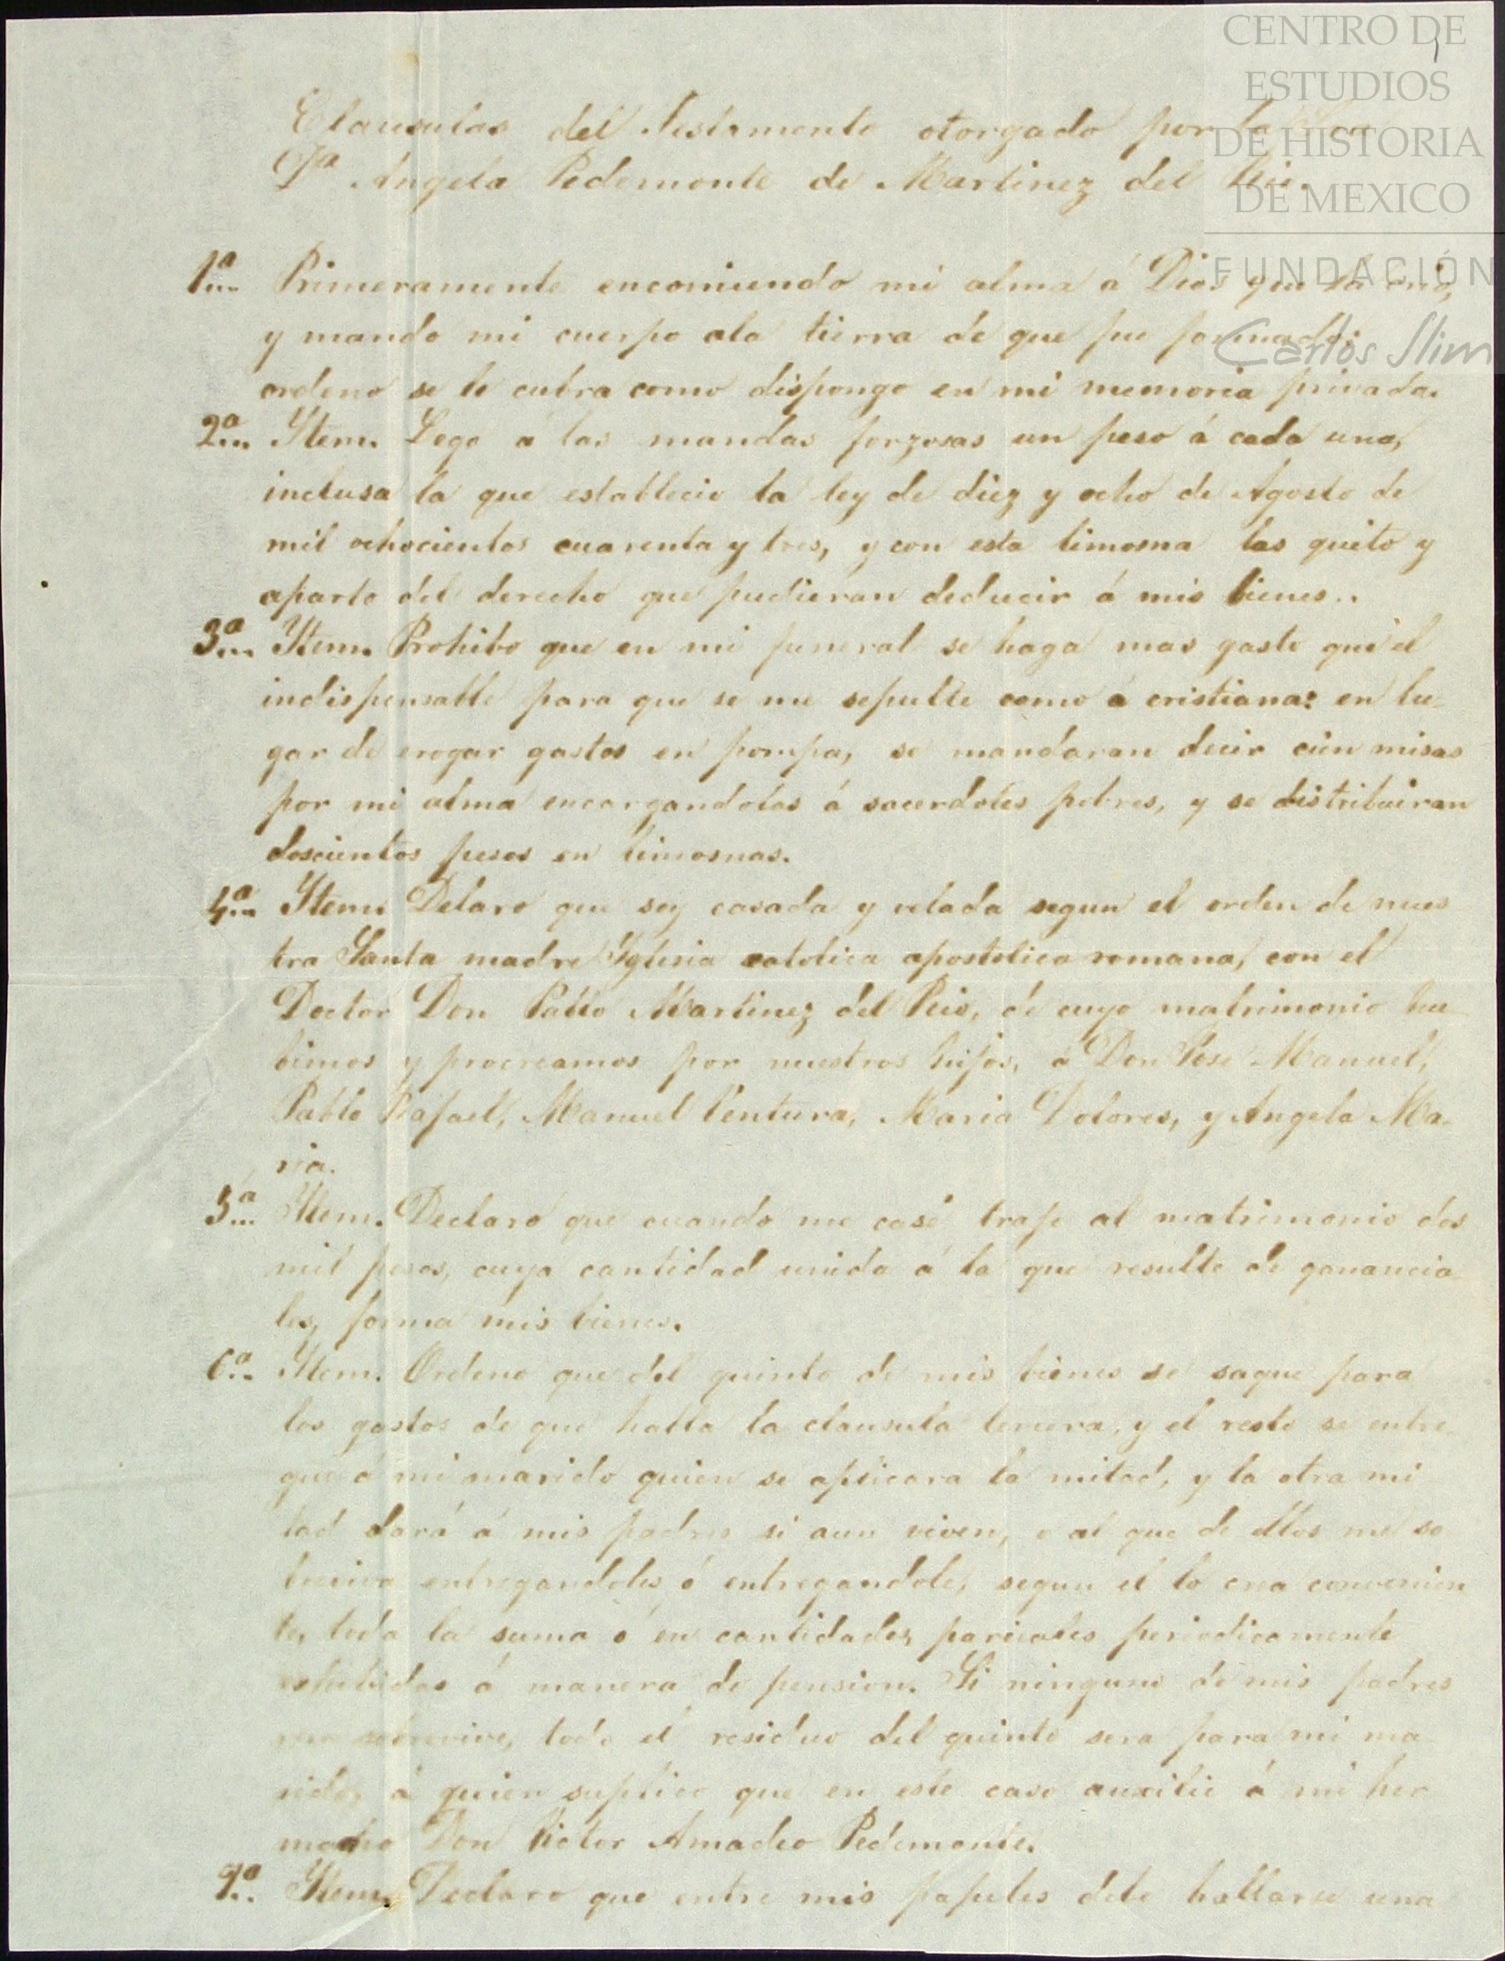 CENTRO DE
ESTUDIOS
DE HISTORIA
DE MEXICO
FUNDACIÓN
Carlos Slim
Clausulas del Testamento otorgado por la
Dª Angela Pedemonte de Martinez del Rio.
1ª... Primeramente encomiendo mi alma á Dios que la crió,
y mando mi cuerpo ala tierra de que fue formado:
ordeno se le cubra como dispongo en mi memoria privada.
2ª... Ytem. Lego á las mandas forzosas un peso á cada una,
inclusa la que establecio la ley de diez y ocho de Agosto de
mil ochocientos cuarenta y tres, y con esta limosna las quito y
aparto del derecho que pudieran deducir á mis bienes..
3ª... Ytem. Prohibo que en mi funeral se haga mas gasto que el
indispensable para que se me sepulte como á cristiana: en lu-
gar de erogar gastos en pompa, se mandaran decir cien misas
por mi alma encargandolas á sacerdotes pobres, y se distribuiran
doscientos pesos en limosnas.
4ª... Ytem. Delaro que soy casada y velada segun el orden de nues
tra Santa madre Yglesia catolica apostolica romana, con el
Doctor Don Pablo Martinez del Rio, de cuyo matrimonio hu
bimos y procreamos por nuestros hijos, á Don José Manuel,
Pablo Rafael, Manuel Ventura, Maria Dolores, y Angela Ma-
ria.
5ª... Ytem. Declaro que cuando me casé, traje al matrimonio dos
mil pesos, cuya cantidad unida á la que resulte de ganancia
les, forma mis bienes.
6ª... Ytem. Ordeno que del quinto de mis bienes se saque para
los gastos de que habla la clausula tercera, y el resto se entre
gue á mi marido quien se aplicara la mitad, y la otra mi
tad dará á mis padres si aun viven, o al que de ellos me so
breviva entregandoles ó entregandole, segun el lo crea convenien
te, toda la suma ó en cantidades parciales periodicamente
exhibidas á manera de pension. Si ninguno de mis padres
me sobrevive, todo el residuo del quinto sera para mi ma
rido, á quien suplico que en este caso auxilie á mi her
mano Don Victor Amadeo Pedemonte.
7ª.. Ytem. Declaro que entre mis papeles debe hallarse una